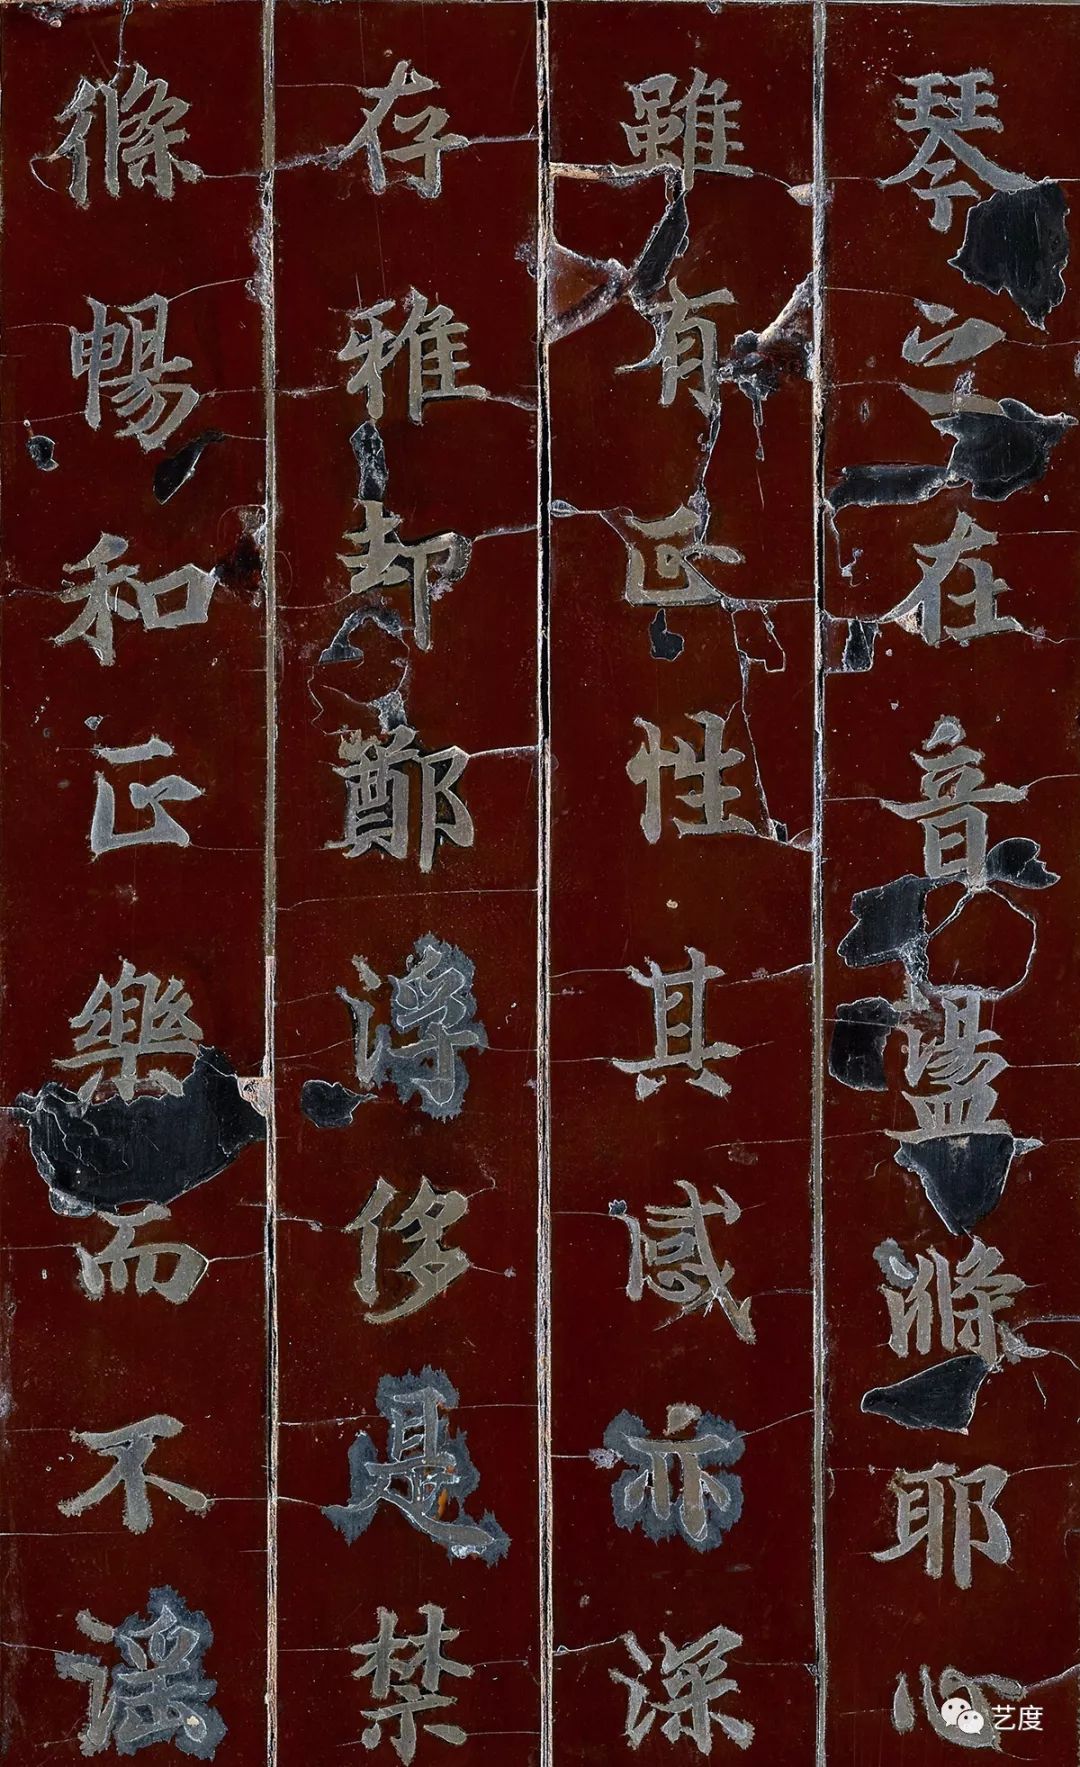 琴之在音盪滌耶心
雖有正性其感亦深
存雅却鄭浮侈是禁
條暢和正樂而不淫
艺度